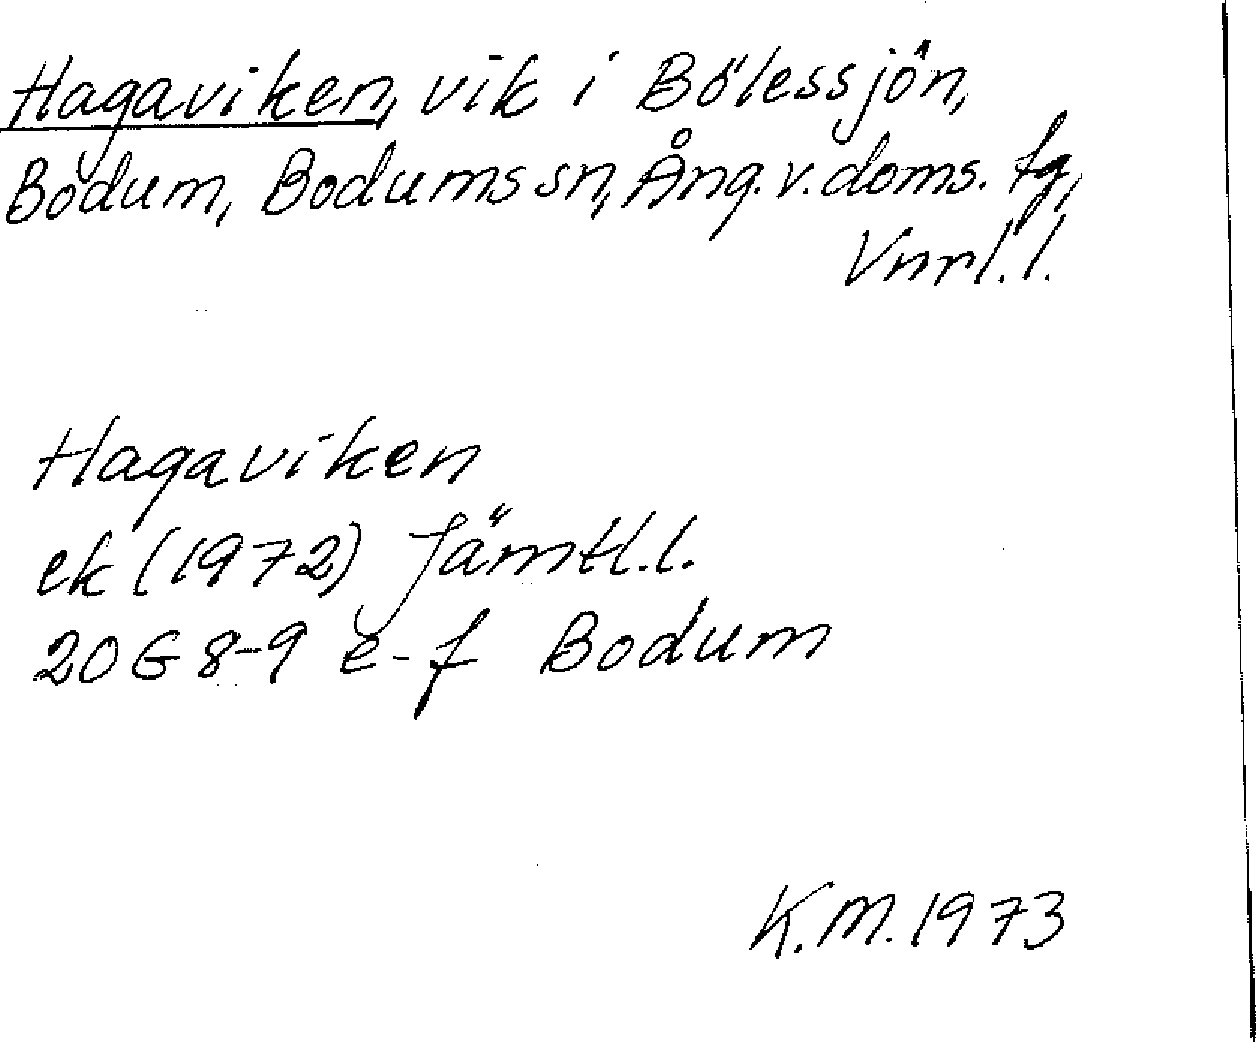 Hagaviken, vik i Bölessjön,
Bodum, Bodums sn, Ång. v. doms. tg,
Vnrl. l.
Hagaviken
ek (1972) Jämtl. l.
20 G 8-9 e-f Bodum
K.M. 1973